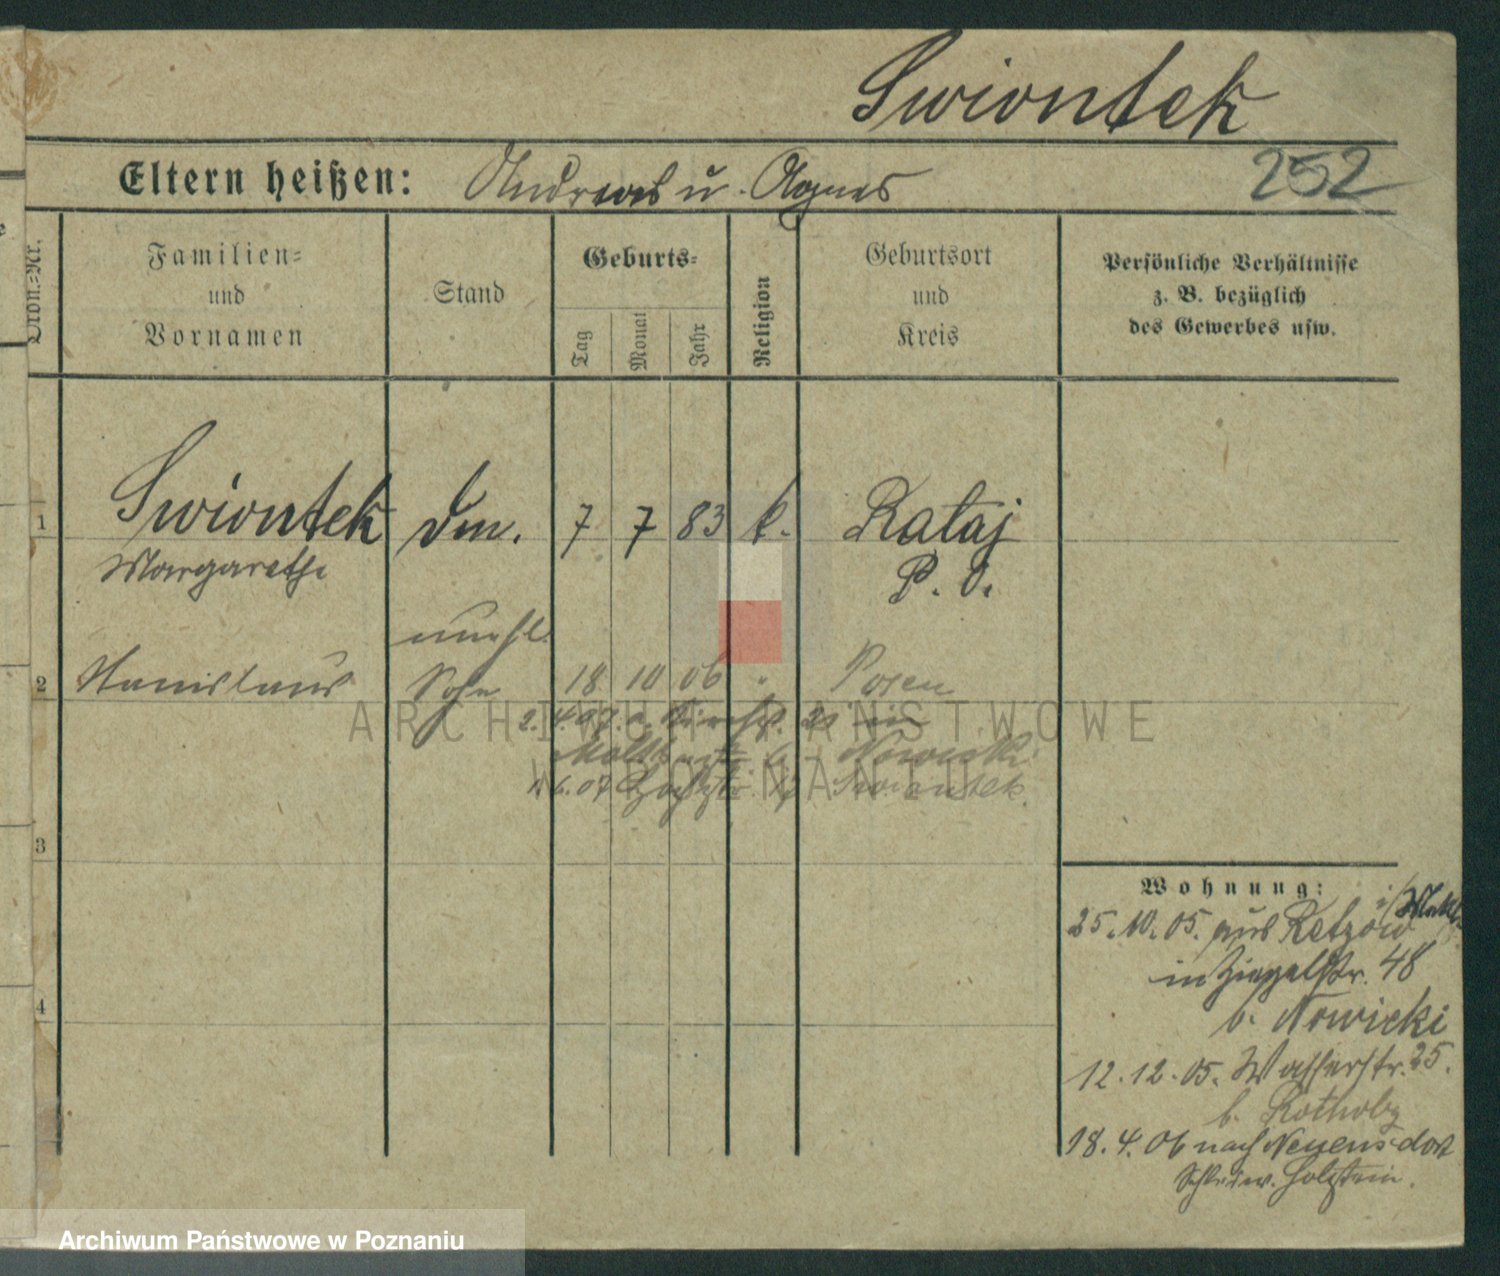 Swiontek
Eltern heißen: Andreas u. Agnes
252
Ordn.-Nr.
Familien-
und
Vornamen
Stand
Geburts-
Tag
Monat
Jahr
Religion
Geburtsort
und
Kreis
Persönliche Verhältnisse
z. B. bezüglich
des Gewerbes usw.
1 Swiontek 7 7 83 k. Rataj
Margarethe P. O.
unehl.
2 Stanislaus Sohn 18 10 06 " Posen
2.4.07
Nowicki
1.6.07 Swiontek
3
4
Wohnung:
25.10.05. aus Retzow i/Meckl.
in Ziegelstr. 48
b. Nowicki
12.12.05. Wasserstr. 25.
b. Rotholz
18.4.06 nach Neuensdorf
Schlesw. Holstein.
ARCHIWUM PAŃSTWOWE
W POZNANIU
Archiwum Państwowe w Poznaniu